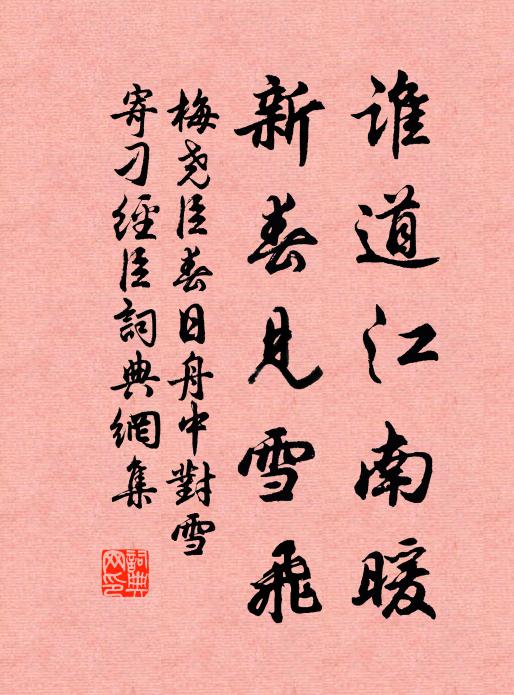 谁道江南暖
新春见雪飛
梅尧臣春日舟中對雪
寄刁經臣詞典網集
詞典
网印